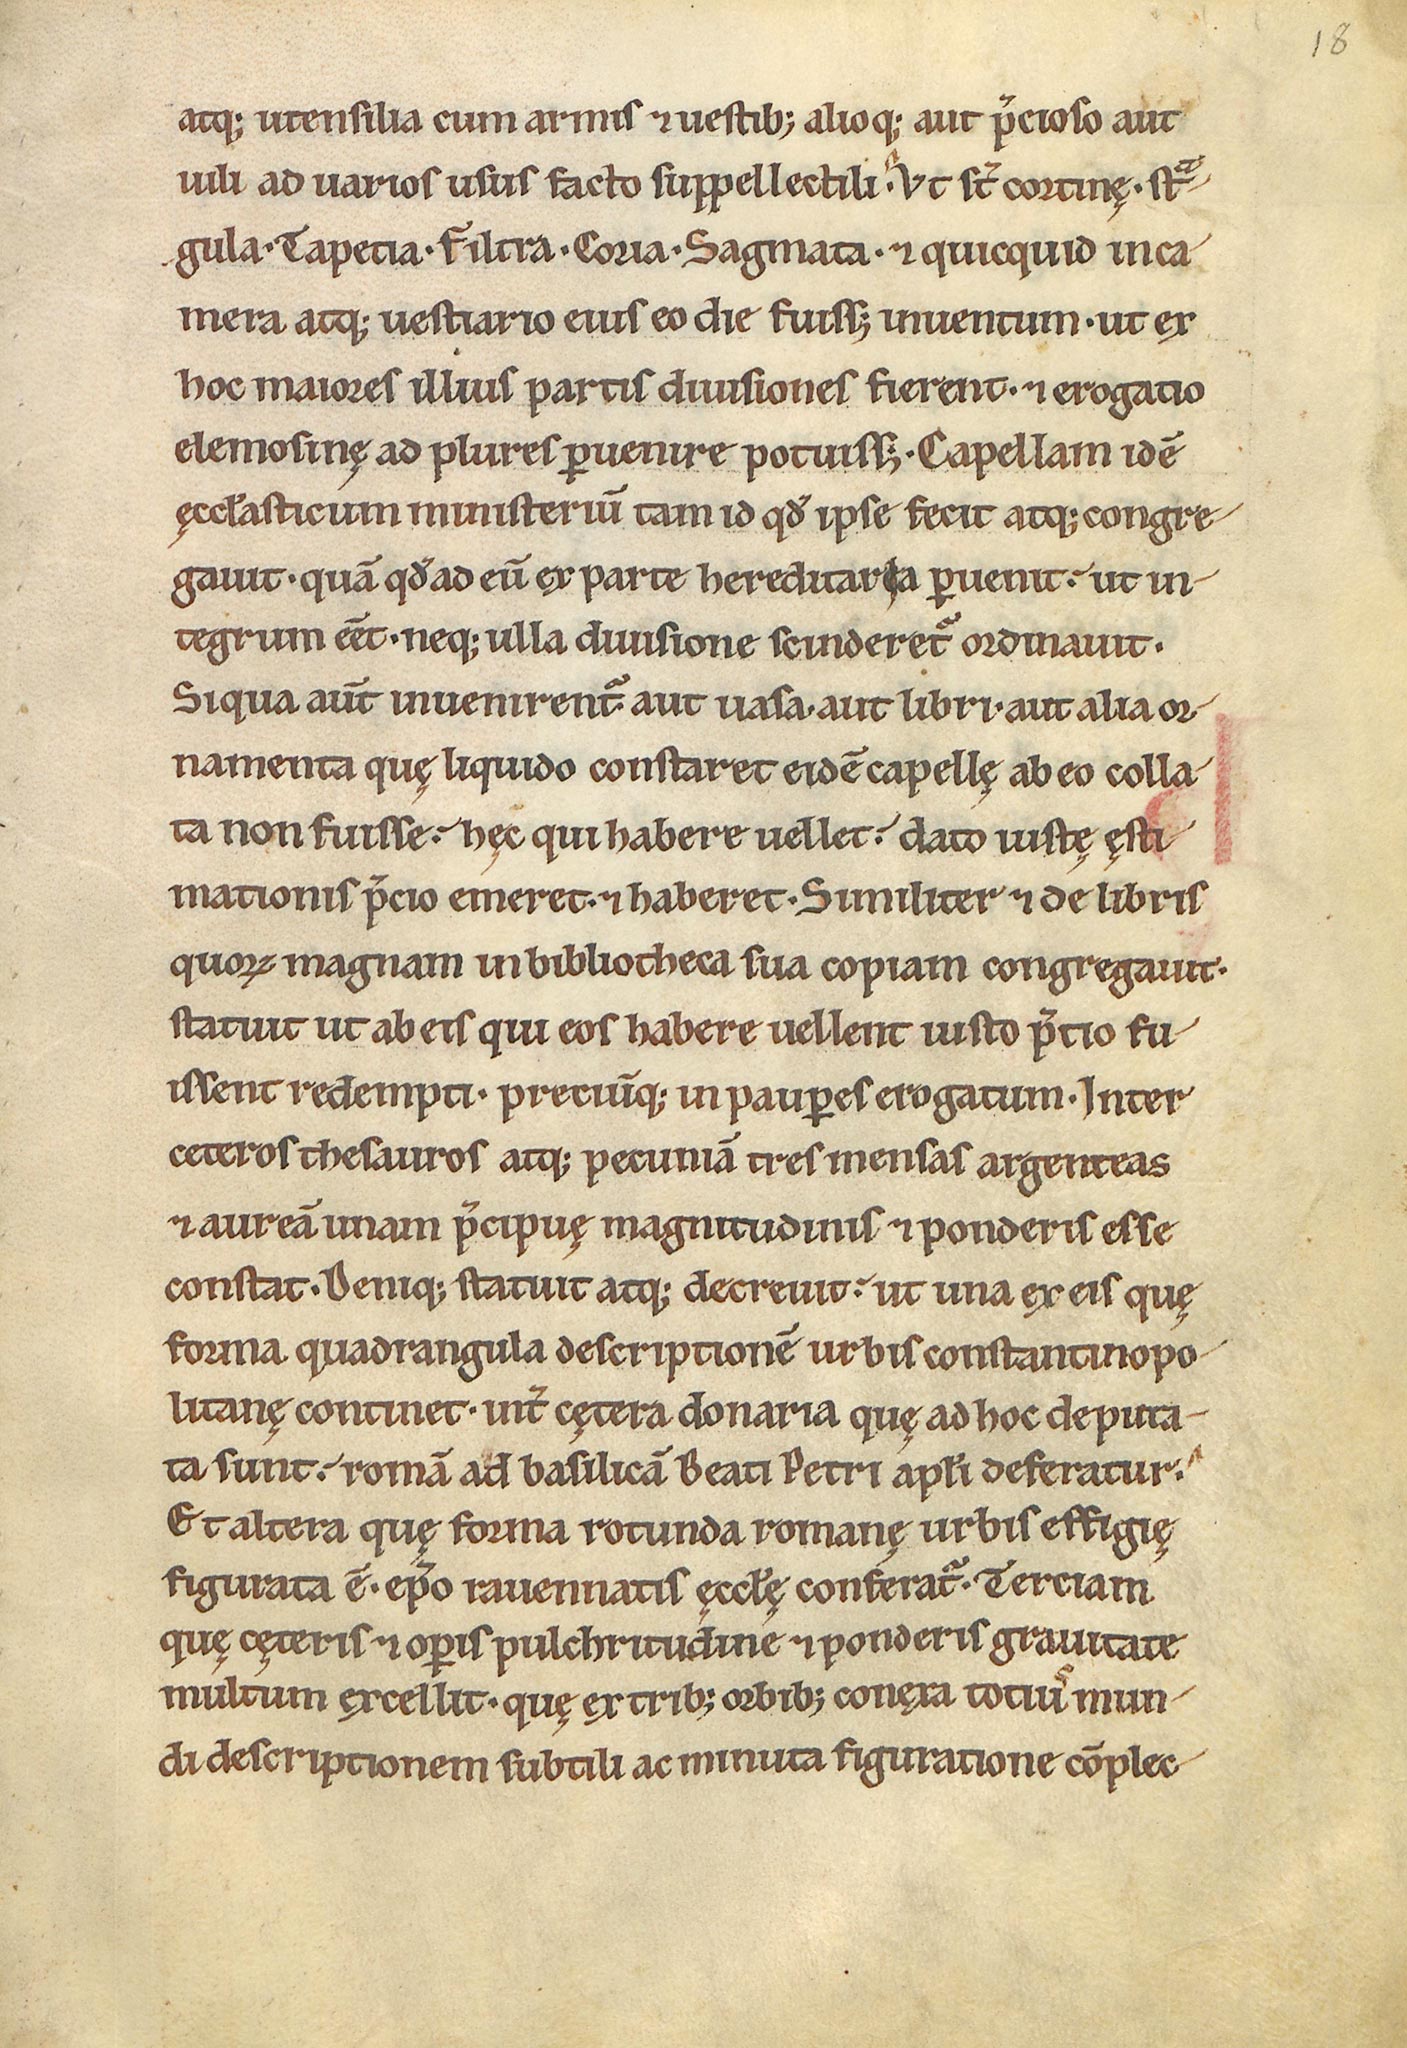 18
atq; utensilia cum armis ⁊ uestib; alioq; aut p̄cioso aut
uili ad uarios usus facto suppellectili. Vt st̄ cortinę. stᵃ-
gula. Tapetia. Filtra. Coria. Sagmata. ⁊ quicquid inca-
mera atq; uestiario eius eo die fuiss; inuentum. ut ex
hoc maiores illius partis diuisiones fierent. ⁊ erogatio
elemosinę ad plures ꝑuenire potuiss;. Capellam idē
ęccl̄asticum ministeriū tam id qđ ipse fecit atq; congre-
gauit. quā qđ ad eū ex parte hereditaria ꝑuenit: ut in-
tegrum eēt. neq; ulla diuisione scinderet᷑ ordinauit.
Siqua aūt inuenirent᷑ aut uasa. aut libri. aut alia or-
namenta quę liquido constaret eidē capellę ab eo colla-
ta non fuisse: hęc qui habere uellet: dato iustę ęsti-
mationis p̄cio emeret. ⁊ haberet. Similiter ⁊ de libris
quoꝝ magnam in bibliotheca sua copiam congregauit.
statuit ut ab eis qui eos habere uellent iusto p̄tio fu-
issent redempti. pretiūq; in pauꝑes erogatum. Inter
ceteros thesauros atq; pecuniā tres mensas argenteas
⁊ aureā unam p̄cipuę magnitudinis ⁊ ponderis esse
constat. Deniq; statuit atq; decreuit: ut una ex eis quę
forma quadrangula descriptionē urbis constantinopo-
litanę continet. int̄ cętera donaria quę ad hoc deputa-
ta sunt: romā ad basilicā Beati Petri apl̄i deferatur.
Et altera quę forma rotunda romanę urbis effigię
figurata ē. ep̄o rauennatis ęccl̄ę conferat᷑. Terciam
quę cęteris ⁊ oꝑis pulchritudine ⁊ ponderis grauitate
multum excellit. quę ex trib; orbib; conexa totiuˢ mun-
di descriptionem subtili ac minuta figuratione cōplec-